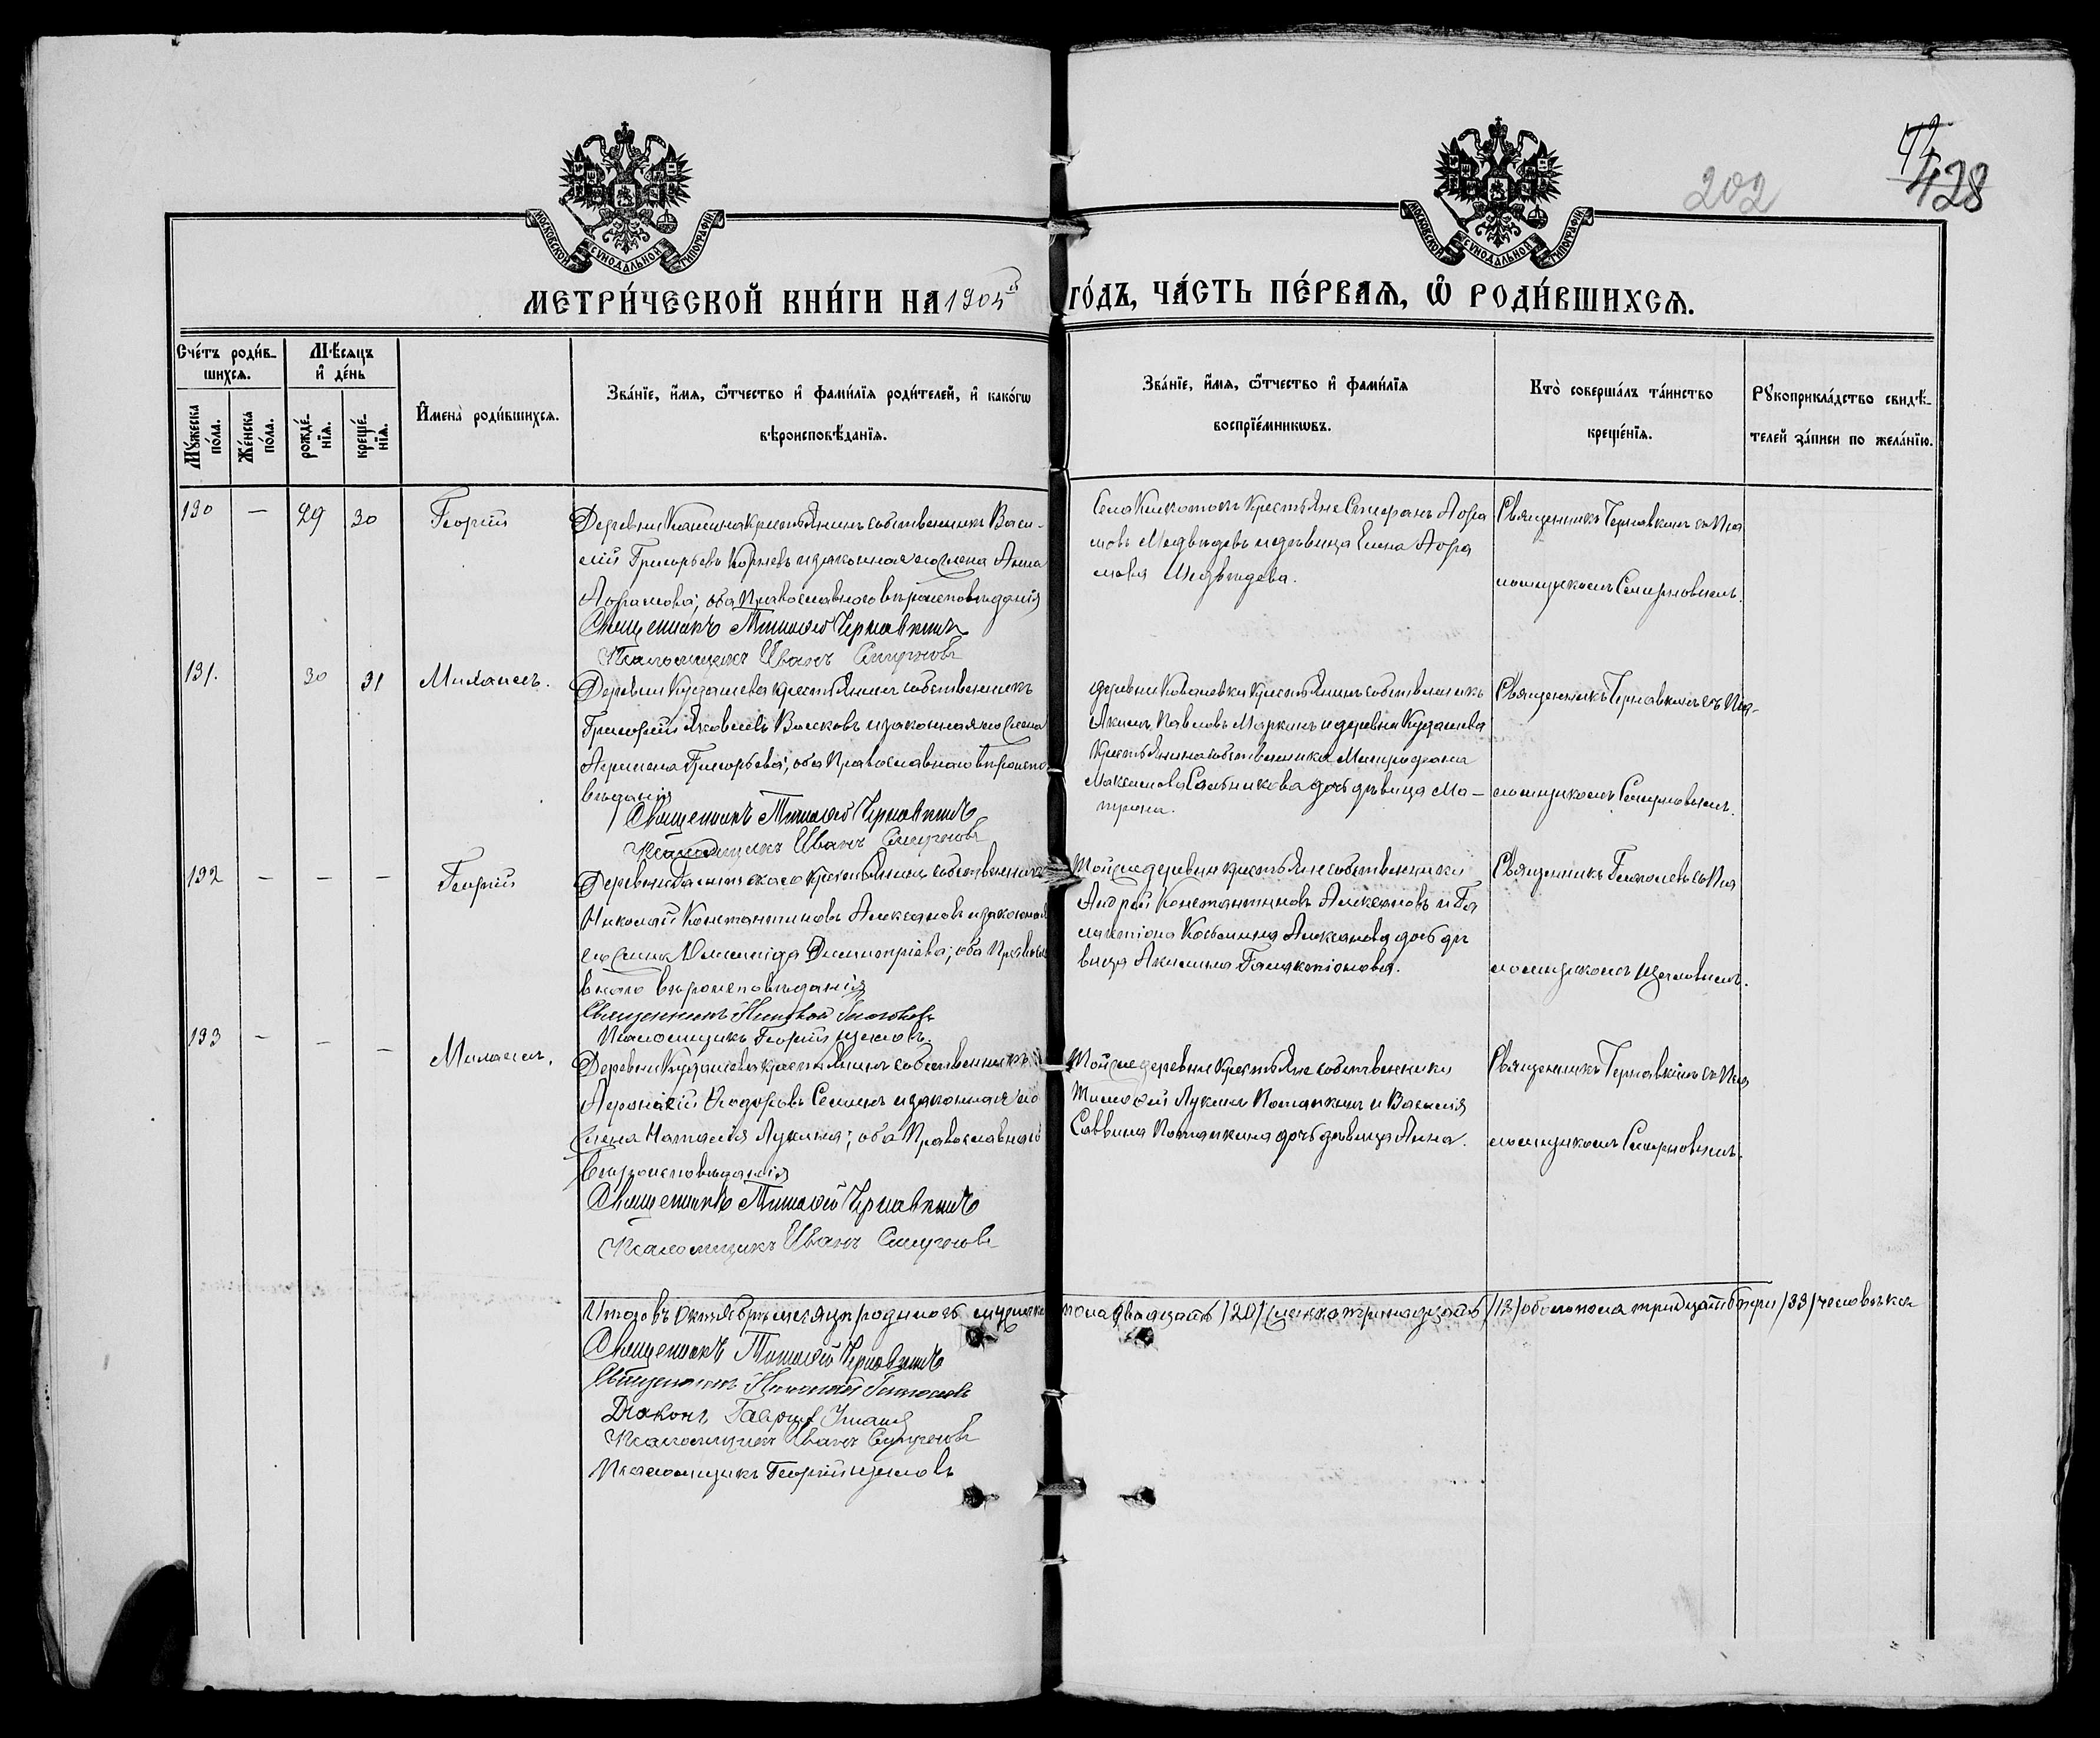 202
428
МОСКОВСКОЙ СѴНОДАЛЬНОЙ ТИПОГРАФІИ
МОСКОВСКОЙ СѴНОДАЛЬНОЙ ТИПОГРАФІИ
МЕТРИ́ЧЕСКОЙ КНИ́ГИ НА 1905й ГО́ДЪ, ЧА́СТЬ ПЕ́РВАѦ, Ѡ҆ РОДИ́ВШИХСѦ.
Сче́тъ роди́в-
шихсѧ.
Мꙋ́жеска по́ла.
Же́нска по́ла.
Мѣ́сѧцъ
и҆ де́нь
рожде́-
нїѧ.
креще́-
нїѧ.
И҆мена̀ роди́вшихсѧ.
Зва́нїе, и҆́мѧ, ѻ҆́тчество и҆ фами́лїѧ роди́телей, и҆ како́гѡ
вѣроисповѣ́данїѧ.
Зва́нїе, и҆́мѧ, ѻ҆́тчество и҆ фами́лїѧ
воспрїе́мникѡвъ.
Кто̀ соверша́лъ та́инство
креще́нїѧ.
Рꙋкоприкла́дство свидѣ́-
телей за́писи по жела́нїю.
130 — 29 30 Георгій
Деревни крестьянинъ собственникъ Васи-
лій Григорьевъ и законная его жена Анна
Аѳрамова; оба Православнаго вѣроисповѣданія
Священникъ Тимоѳей Чернавкинъ
Псаломщикъ Иванъ Смирновъ
Села крестьяне Стефанъ Аѳра
мовъ Медвѣдевъ и дѣвица Елена Аѳра
мова Медвѣдева.
Священникъ Чернавкинъ съ Пса
ломщикомъ Смирновымъ.
131. 30 31 Михаилъ.
Деревни Кудашева крестьянинъ собственникъ
Григорій Яковлевъ Волковъ и законная его жена
Григорьева; оба Православнаго вѣроиспо
вѣданія
Священникъ Тимоѳей Чернавкинъ
Псаломщикъ Иванъ Смирновъ
деревни Ковалевки крестьянинъ собственникъ
Акимъ Павловъ Маркинъ и деревни Кудашева
крестьянина собственника Митрофана
Максимова Сальникова дочь дѣвица Ма-
трона.
Священникъ Чернавкинъ съ Пса-
ломщикомъ Смирновымъ.
132 — — — Георгій
Деревни крестьянинъ собственникъ
Николай Константиновъ Алексановъ и законная
его жена Димитріева; оба Правосла
внаго вѣроисповѣданія
Священникъ Николай Гиляровъ
Псаломщикъ Георгій
Той же деревни крестьяне собственники
Андрей Константиновъ Алексановъ и Га
лактіона Косьмина Алексанова дочь дѣ
вица Акилина Галактіонова.
Священникъ съ Пса
ломщикомъ
133 — — — Михаилъ.
Деревни Кудашева крестьянинъ собственникъ
Ѳеодоровъ Семинъ и законная его
жена Наталія Лукина; оба Православнаго
вѣроисповѣданія
Священникъ Тимоѳей Чернавкинъ
Псаломщикъ Иванъ Смирновъ
Той же деревни крестьяне собственники
Тимоѳей Лукинъ Потапкинъ и Василія
Саввина Потапкина дочь дѣвица Анна.
Священникъ Чернавкинъ съ Пса
ломщикомъ Смирновымъ.
Итого въ Октябрѣ мѣсяцѣ родилось мужеска пола двадцать /20/ женска тринадцать /13/ обоего пола тридцать три /33/ человѣка
Священникъ Тимоѳей Чернавкинъ
Священникъ Николай
Діаконъ Гавріилъ
Псаломщикъ Иванъ Смирновъ
Псаломщикъ Георгій